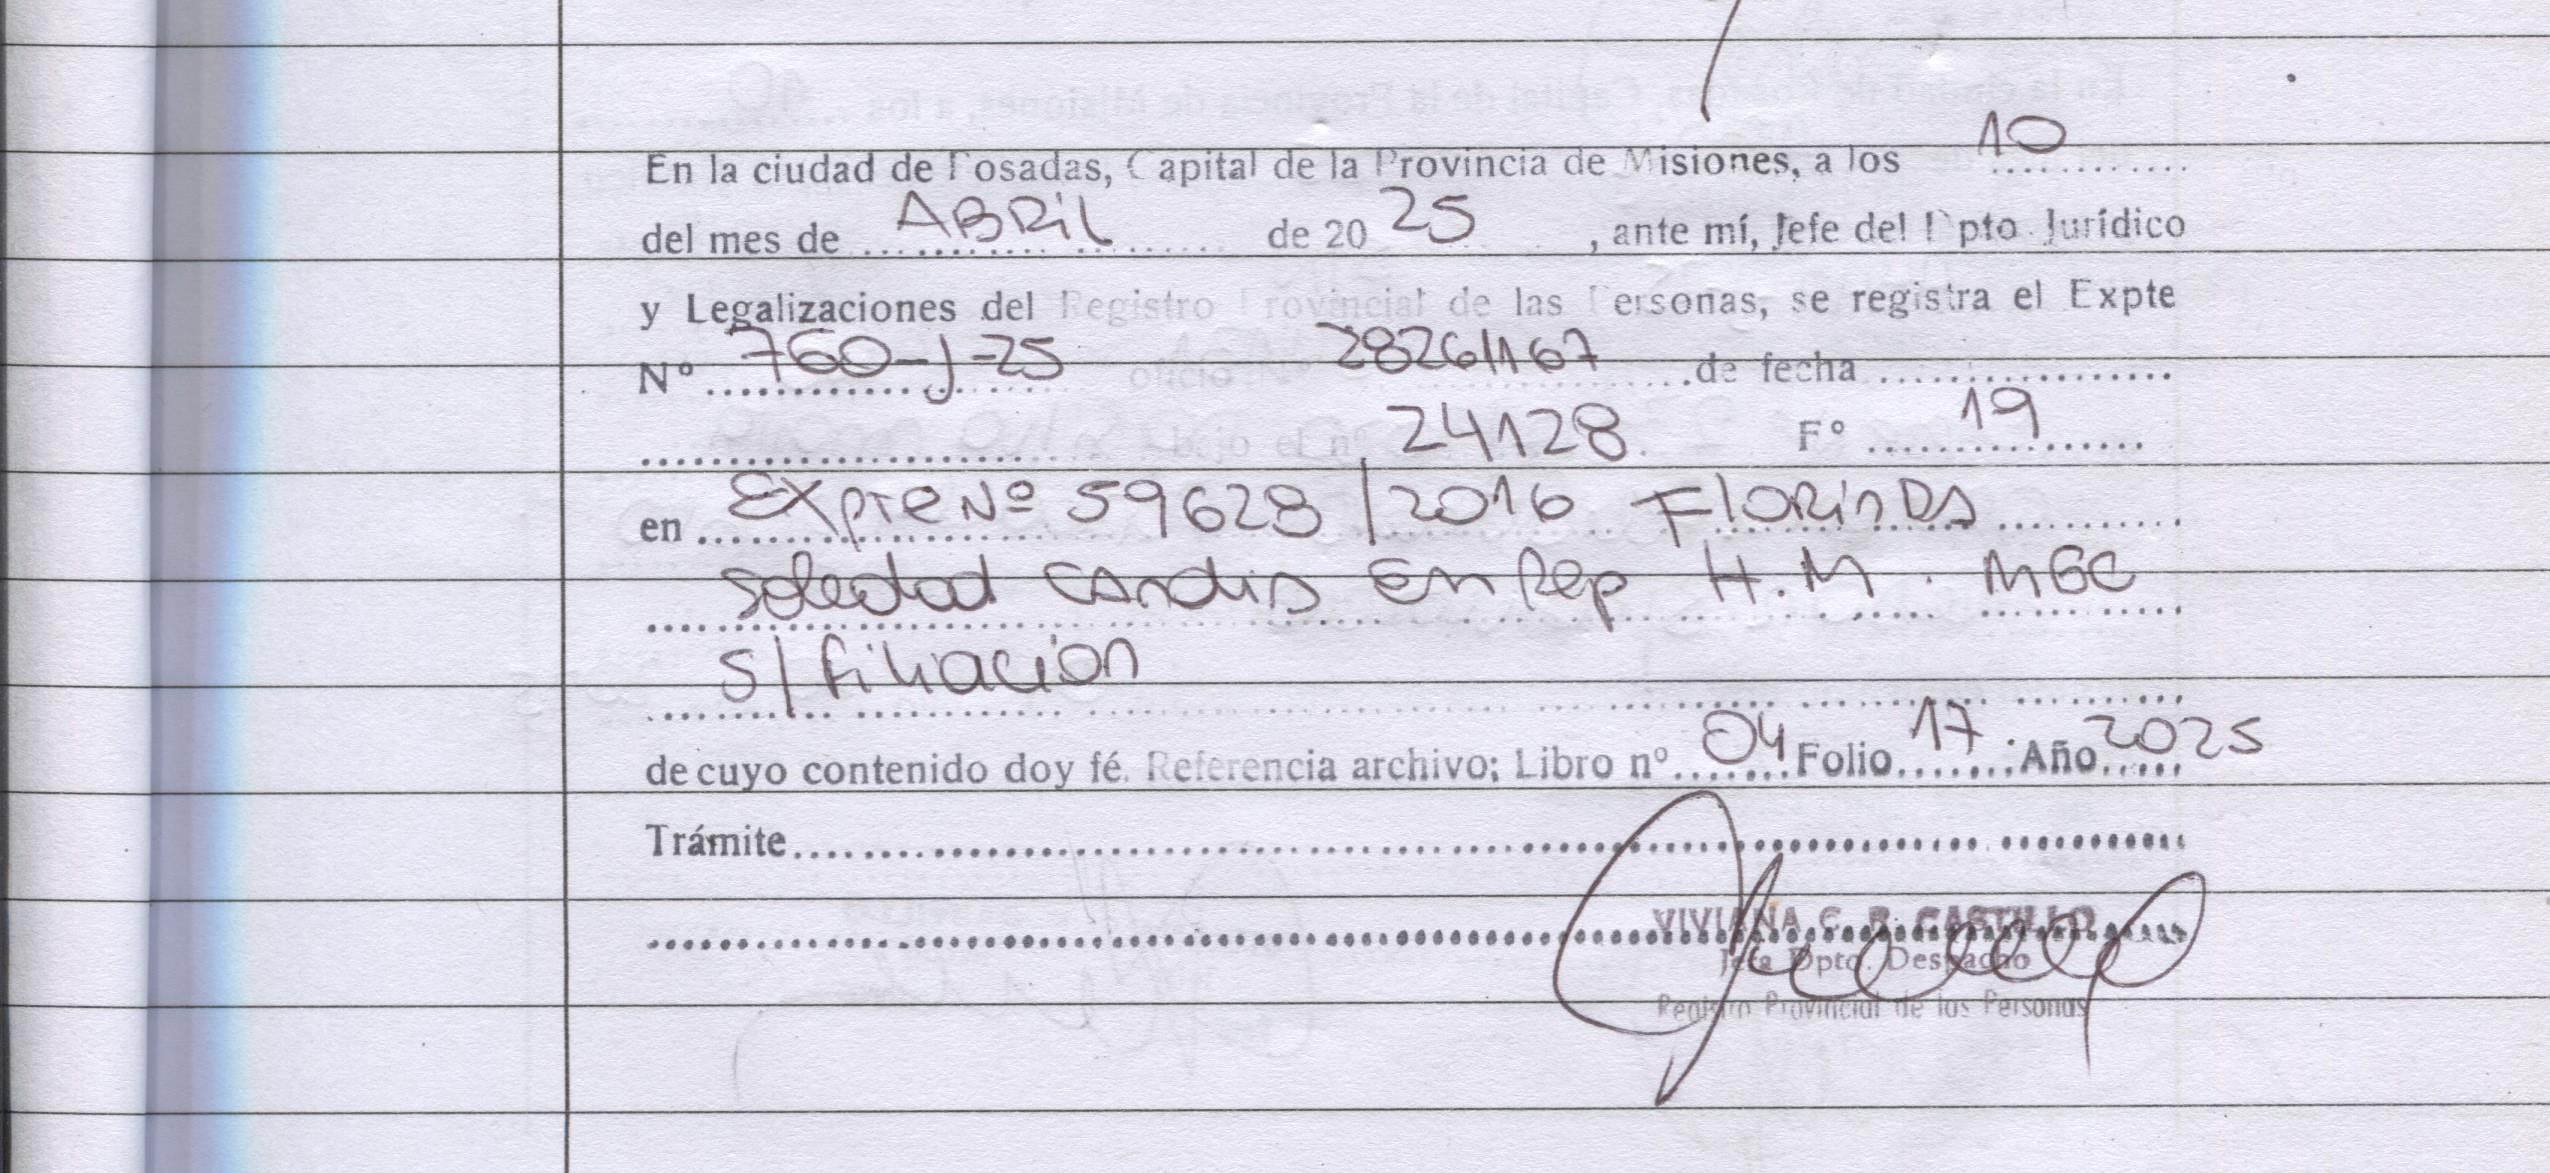 En la ciudad de Posadas, Capital de la Provincia de Misiones, a los 10
del mes de ABRiL de 20 25 , ante mí, Jefe del Dpto. Jurídico
y Legalizaciones del Registro Provincial de las Personas, se registra el Expte
Nº 760-J-25 oficio Nº 28261167 de fecha
bajo el nº 24128. Fº 19
en Expte Nº 59628/2016 FlORinDA
Soledad En Rep H.M. MGC
s/ filiacion
de cuyo contenido doy fé. Referencia archivo; Libro nº 04 Folio 17 Año 2025
Trámite
VIVIANA C. R. CASTILLO
Jefa Dpto. Despacho
Registro Provincial de las Personas